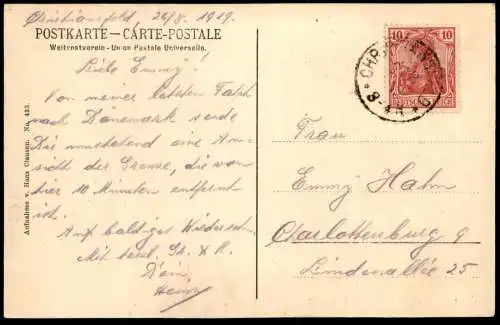 Christiansfeld, 26/8. 1919.
POSTKARTE — CARTE-POSTALE
Weltpostverein - Union Postale Universelle.
Liebe Emmy!
Von meiner letzten Fahrt
nach Dänemark sende
Dir umstehend eine An-
sicht der Grenze, die von
hier 10 Minuten entfernt
ist.
Auf baldiges Wiedersehn
Mit herzl. Gr. & K.
Dein
Heinz
Aufnahme v. Hans Clausen. No. 423.
10 10
DEUTSCHES REICH
CHR
8-9
Frau
Emmy Hahn
Charlottenburg 9
Lindenallée 25